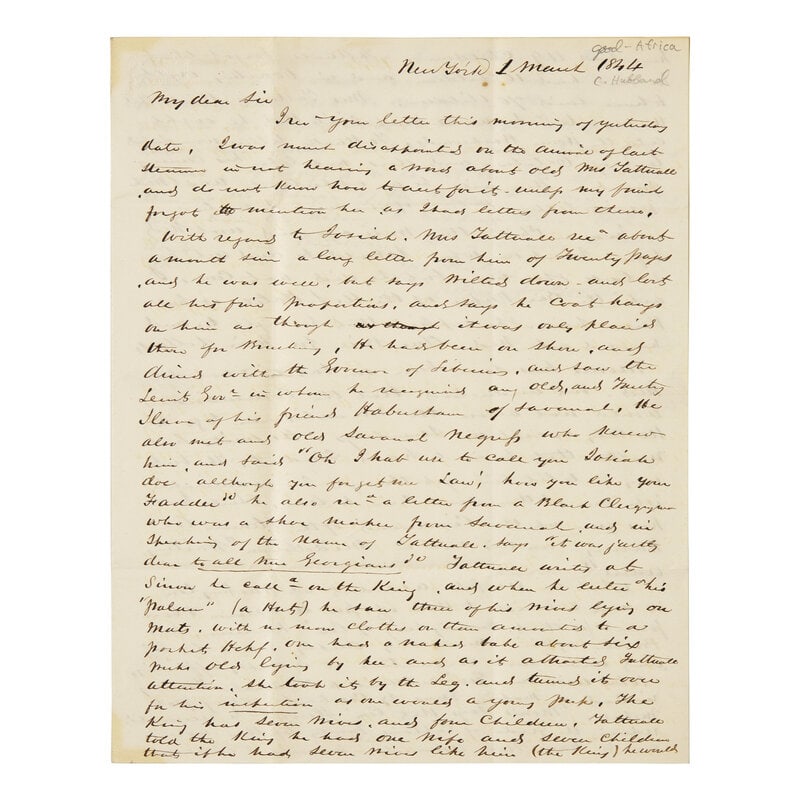 good - Africa
New York 1 March 1844
C. Hubbard
My dear Sir
I recd your letter this morning of yesterday
date, I was much disappointed on the arrival of last
steamer in not hearing a word about old Mrs Tattnall
and do not know how to acct for it unless my friend
forgot to mention her as I had letters from them.
With regard to Josiah. Mrs Tattnall recd about
a month since a long letter from him of Twenty pages
and he was well, but says wilted down and lost
all his fair proportions, and says his coat hangs
on him as though as though it was only placed
there for Brushing, He had been on shore, and
dined with the Govenor of Liberia, and saw the
Leiut Govr in whom he recognized an old, and trusty
Slave of his friend Habersham of Savanah. He
also met and old Savanah Negress who knew
him, and said "Oh I hab use to call you Josiah
doe although you forget me Law! how you like your
Fadder" &c he also recd a letter from a Black Clergyman
who was a Shoe maker from Savanah and in
speaking of the name of Tattnall. says "it was justly
dear to all true Georgians" &c Tattnall writes at
Sinou he calld on the King, and when he enterd his
"Palace" (a Hut) he saw three of his wives lying on
mats, with no more clothes on than amounted to a
pocket Hdkf. one had a naked babe about six
weeks old lying by her and as it attracted Tattnalls
attention, she took it by the Leg, and turned it over
for his inspection as one would a young pup. The
King has seven wives, and four Children, Tattnall
told the King he had one Wife and seven Children
that if he had seven wives like him (the King) he would